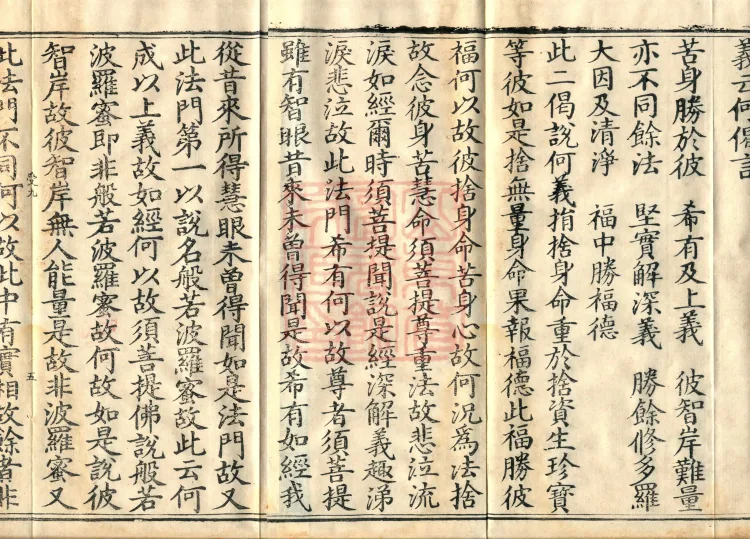 義云何偈言
苦身勝於彼　希有及上義　彼智岸難量
亦不同餘法　堅實解深義　勝餘修多羅
大因及清淨　福中勝福德
此二偈說何義捐捨身命重於捨資生珍寶
等彼如是捨無量身命果報福德此福勝彼
福何以故彼捨身命苦身心故何況為法捨
故念彼身苦慧命須菩提尊重法故悲泣流
淚如經爾時須菩提聞說是經深解義趣涕
淚悲泣故此法門希有何以故尊者須菩提
雖有智眼昔來未曾得聞是故希有如經我
從昔來所得慧眼未曾得聞如是法門故又
此法門第一以說名般若波羅蜜故此云何
成以上義故如經何以故須菩提佛說般若
波羅蜜即非般若波羅蜜故何故如是說彼
智岸故彼智岸無人能量是故非波羅蜜又
五
此法門不同何以故此中有實相故餘者非